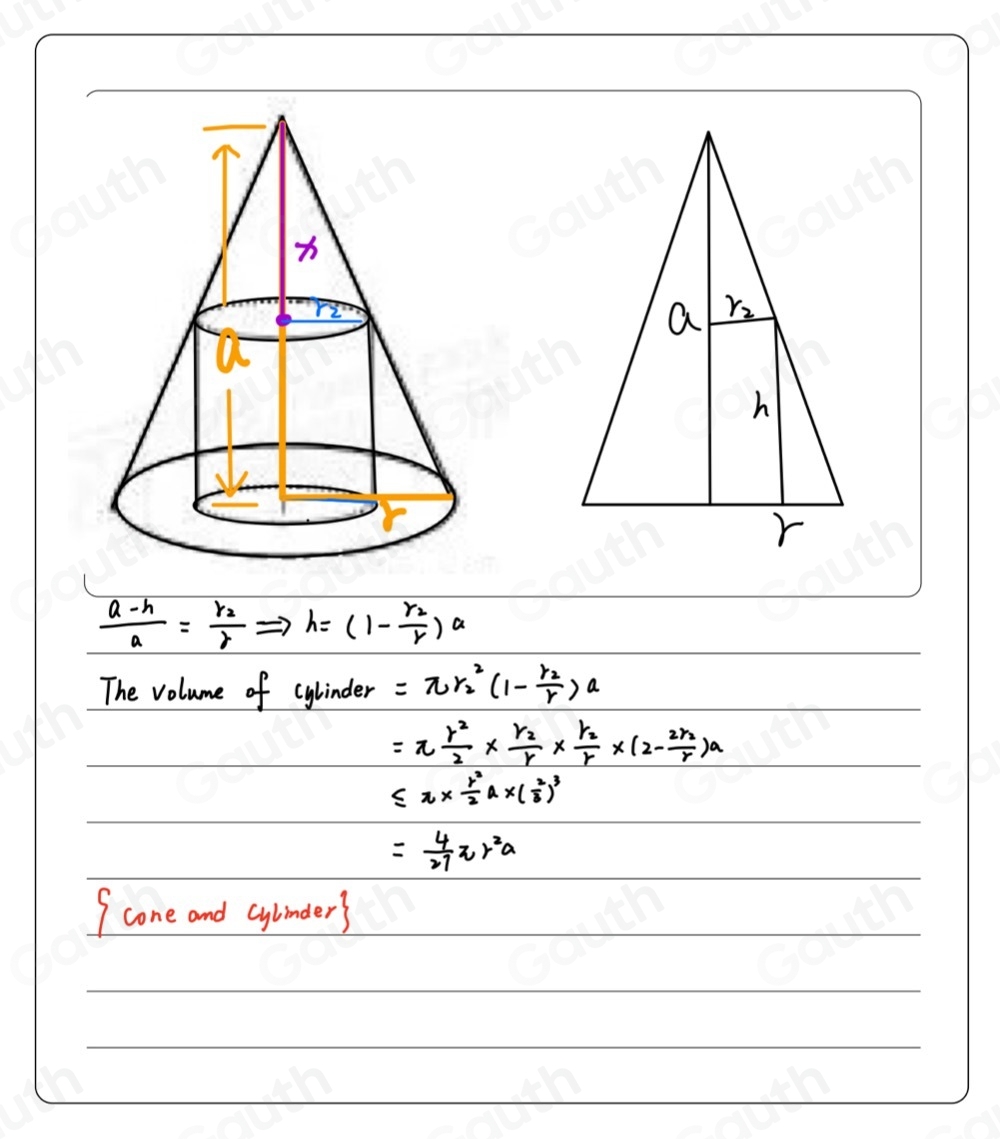 x
r₂
a
r
a
r₂
h
r
(a-h)/a = r₂/r ⟹ h = (1 - r₂/r) a
The volume of cylinder = πr₂² (1 - r₂/r) a
= π r²/2 × r₂/r × r₂/r × (2 - 2r₂/r) a
≤ π × r²/2 a × (2/3)³
= 4/27 π r² a
{cone and cylinder}
Gauth